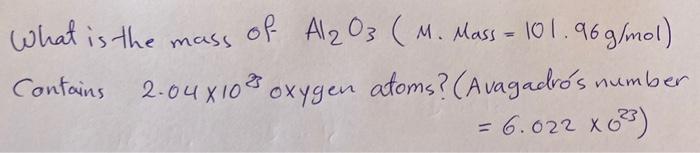 What is the mass of Al₂O₃ ( M. Mass = 101.96 g/mol)
Contains 2.04 x 10²³ oxygen atoms? (Avagadro's number
= 6.022 x 0²³)